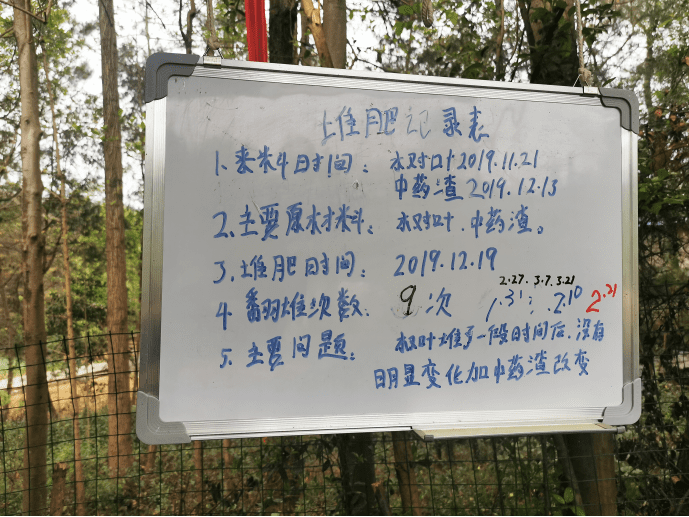 堆肥记录表
1. 来料日时间: 树叶2019.11.21
中药渣2019.12.13
2. 主要原材料: 树叶、中药渣。
3. 堆肥日时间: 2019.12.19
2.27. 3.7. 3.21
4 翻堆次数: 9次 1.31; 2.10 2.21
5. 主要问题: 树叶堆了一段时间后,没有
明显变化加中药渣改变